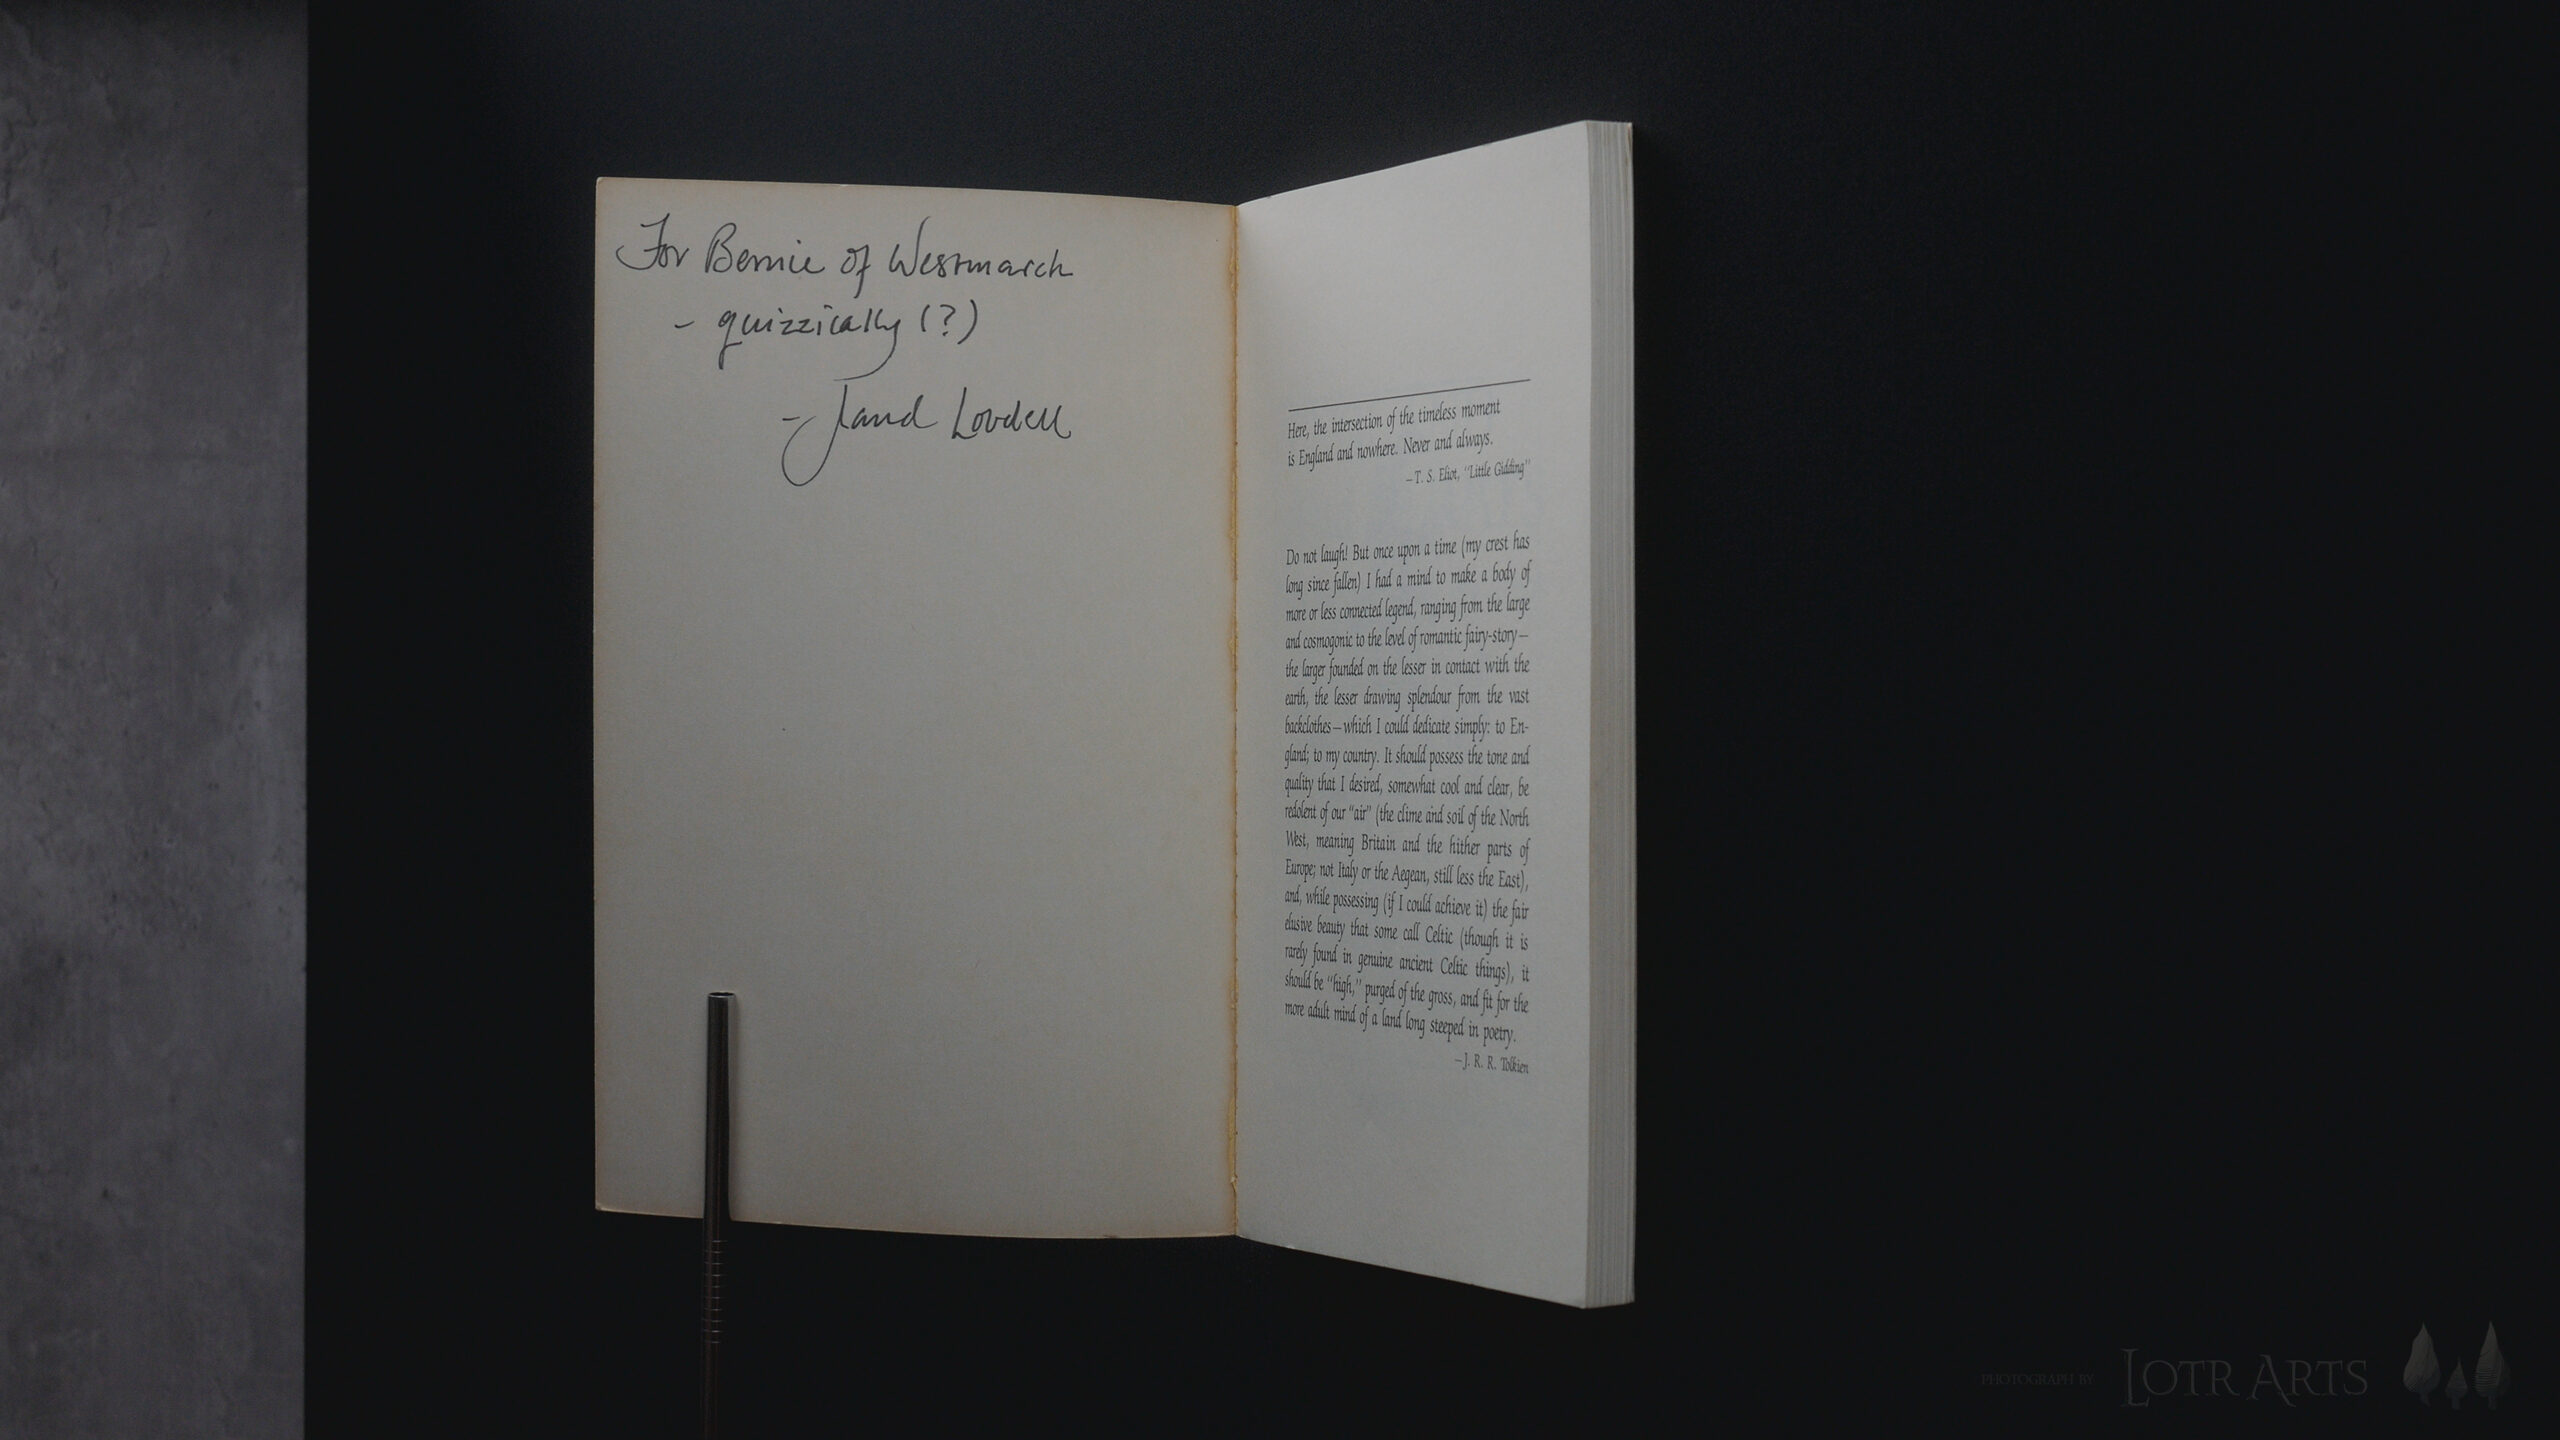 For Bernie of Westmarch
- quizzically (?)
- Jared Lobdell
Here, the intersection of the timeless moment
is England and nowhere. Never and always.
—T. S. Eliot, "Little Gidding"
Do not laugh! But once upon a time (my crest has
long since fallen) I had a mind to make a body of
more or less connected legend, ranging from the large
and cosmogonic to the level of romantic fairy-story—
the larger founded on the lesser in contact with the
earth, the lesser drawing splendour from the vast
backclothes—which I could dedicate simply: to En-
gland; to my country. It should possess the tone and
quality that I desired, somewhat cool and clear, be
redolent of our "air" (the clime and soil of the North
West, meaning Britain and the hither parts of
Europe; not Italy or the Aegean, still less the East),
and, while possessing (if I could achieve it) the fair
elusive beauty that some call Celtic (though it is
rarely found in genuine ancient Celtic things), it
should be "high," purged of the gross, and fit for the
more adult mind of a land long steeped in poetry.
—J. R. R. Tolkien
PHOTOGRAPH BY LOTR ARTS